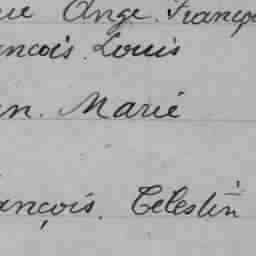 Ange François
ançois Louis
n. Marie
ançois. Célestin